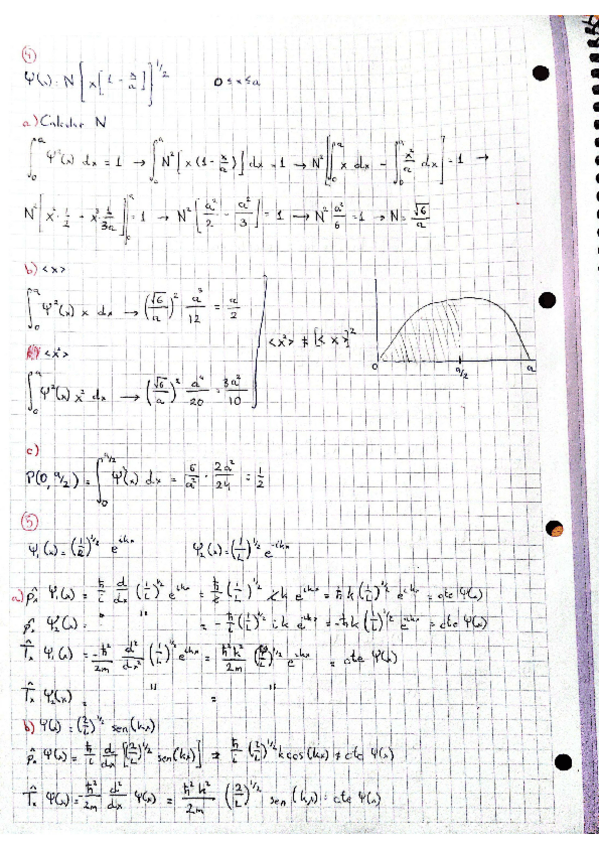 4
Ψ(x) = N [x[1 - x/a]]^1/2    0 ≤ x ≤ a
a) Calcular N
∫₀ᵃ Ψ²(x) dx = 1 → ∫₀ᵃ N² [x (1 - x/a)] dx = 1 → N² [∫₀ᵃ x dx - ∫₀ᵃ x²/a dx] = 1 →
N² [x² · 1/2 - x³ 1/3a]₀ᵃ = 1 → N² [a²/2 - a²/3] = 1 → N² a²/6 = 1 → N = √6/a
b) <x>
∫₀ᵃ Ψ²(x) x dx → (√6/a)² a³/12 = a/2
<x²> ≠ [<x>]²
<x²>
∫₀ᵃ Ψ²(x) x² dx → (√6/a)² a⁴/20 = 3a²/10
0 a/2 a
c)
P(0, a/2) = ∫₀^a/2 Ψ²(x) dx = 6/a² · 2a²/24 = 1/2
5
Ψ₁(x) = (1/L)^1/2 e^ikx    Ψ₂(x) = (1/L)^1/2 e^-ikx
a) p̂x Ψ₁(x) = ħ/i d/dx (1/L)^1/2 e^ikx = ħ/i (1/L)^1/2 i k e^ikx = ħ k (1/L)^1/2 e^ikx = cte Ψ(x)
p̂x Ψ₂(x) = " " = - ħ/i (1/L)^1/2 i k e^ikx = -ħk (1/L)^1/2 e^-ikx = cte Ψ(x)
T̂x Ψ₁(x) = -ħ²/2m d²/dx² (1/L)^1/2 e^ikx = ħ²k²/2m (1/L)^1/2 e^ikx = cte Ψ(x)
T̂x Ψ₂(x) = " = "
b) Ψ(x) = (2/L)^1/2 sen(kx)
p̂x Ψ(x) = ħ/i d/dx [(2/L)^1/2 sen(kx)] = ħ/i (2/L)^1/2 k cos(kx) ≠ cte Ψ(x)
T̂x Ψ(x) = -ħ²/2m d²/dx Ψ(x) = ħ²k²/2m (2/L)^1/2 sen (kx) = cte Ψ(x)